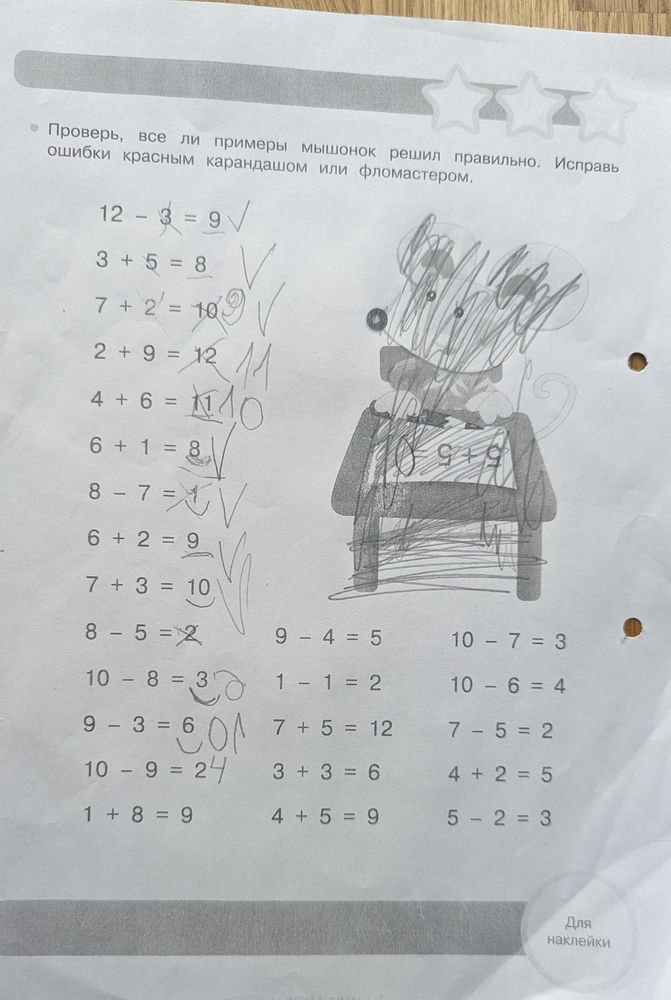 Проверь, все ли примеры мышонок решил правильно. Исправь
ошибки красным карандашом или фломастером.
12 - 3 = 9
3 + 5 = 8
7 + 2 = 10 9
2 + 9 = 12 11
4 + 6 = 11 10
6 + 1 = 8
8 - 7 = 1
6 + 2 = 9
7 + 3 = 10
8 - 5 = 2
10 - 8 = 3
9 - 3 = 6
10 - 9 = 2 4
1 + 8 = 9
5 + 5
9 - 4 = 5
1 - 1 = 2
7 + 5 = 12
3 + 3 = 6
4 + 5 = 9
10 - 7 = 3
10 - 6 = 4
7 - 5 = 2
4 + 2 = 5
5 - 2 = 3
Для
наклейки